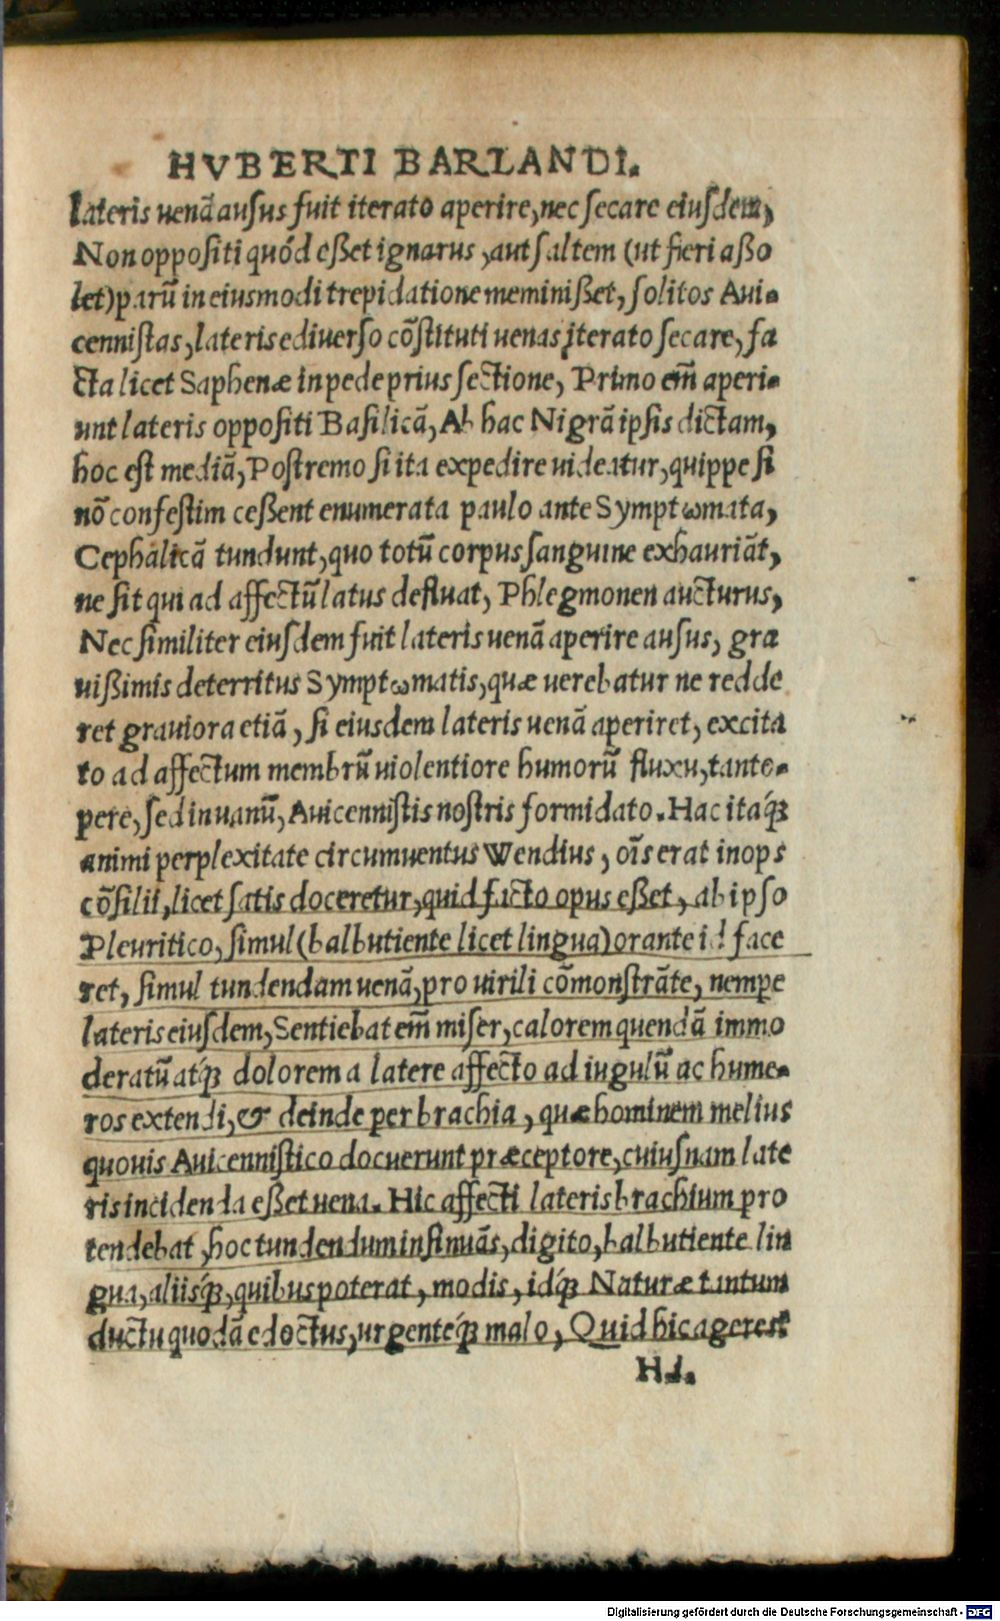 HVBERTI BARLANDI.
lateris uenā ausus fuit iterato aperire, nec secare eiusdem,
Non oppositi quód eßet ignarus, aut saltem (ut fieri aßo
let) parū in eiusmodi trepidatione meminißet, solitos Aui-
cennistas, lateris e diuerso cōstituti uenas iterato secare, fa
cta licet Saphenæ in pede prius sectione, Primo em̄ aperi-
unt lateris oppositi Basilicā, Ab hac Nigrā ipsis dictam,
hoc est mediā, Postremo si ita expedire uideatur, quippe si
nō confestim ceßent enumerata paulo ante Symptωmata,
Cephalicā tundunt, quo totū corpus sanguine exhauriāt,
ne sit qui ad affectū latus defluat, Phlegmonen aucturus,
Nec similiter eiusdem fuit lateris uenā aperire ausus, gra
uißimis deterritus Symptωmatis, quæ uerebatur ne redde
ret grauiora etiā, si eiusdem lateris uenā aperiret, excita
to ad affectum membrū uiolentiore humorū fluxu, tanto-
pere, sed in uanū, Auicennistis nostris formidato. Hac itaq́
animi perplexitate circumuentus Wendius, oīs erat inops
cōsilii, licet satis doceretur, quid facto opus eßet, ab ipso
Pleuritico, simul (balbutiente licet lingua) orante id face
ret, simul tundendam uenā, pro uirili cōmonstrāte, nempe
lateris eiusdem, Sentiebat em̄ miser, calorem quendā immo
deratū atq́ dolorem a latere affecto ad iugulū ac hume-
ros extendi, & deinde per brachia, quæ hominem melius
quouis Auicennistico docuerunt præceptore, cuiusnam late
ris incidenda eßet uena. Hic affecti lateris brachium pro
tendebat, hoc tundendum insinuās, digito, balbutiente lin
gua, aliisq́, quibus poterat, modis, idq́ Naturæ tantum
ductu quodā edoctus, urgenteq́ malo, Quid hic ageret
H.i.
Digitalisierung gefördert durch die Deutsche Forschungsgemeinschaft - DFG